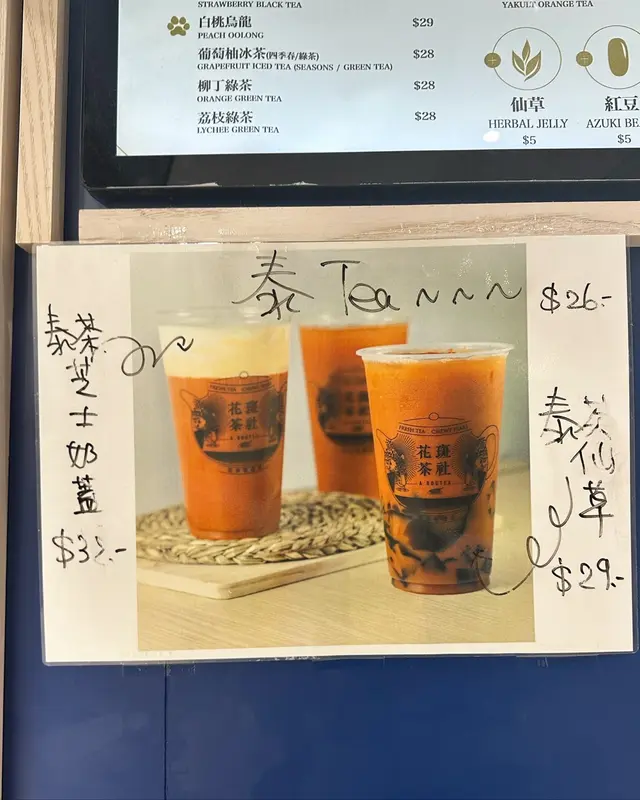 STRAWBERRY BLACK TEA
白桃烏龍 $29
PEACH OOLONG
葡萄柚冰茶(四季春/綠茶) $28
GRAPEFRUIT ICED TEA (SEASONS / GREEN TEA)
柳丁綠茶 $28
ORANGE GREEN TEA
荔枝綠茶 $28
LYCHEE GREEN TEA
YAKULT ORANGE TEA
仙草
HERBAL JELLY
$5
紅豆
AZUKI BE
$5
泰 Tea ~ ~ ~ $26.-
泰茶
芝
士
奶
蓋
泰茶
仙
草
$29.-
花 斑
茶 社
花 斑
茶 社